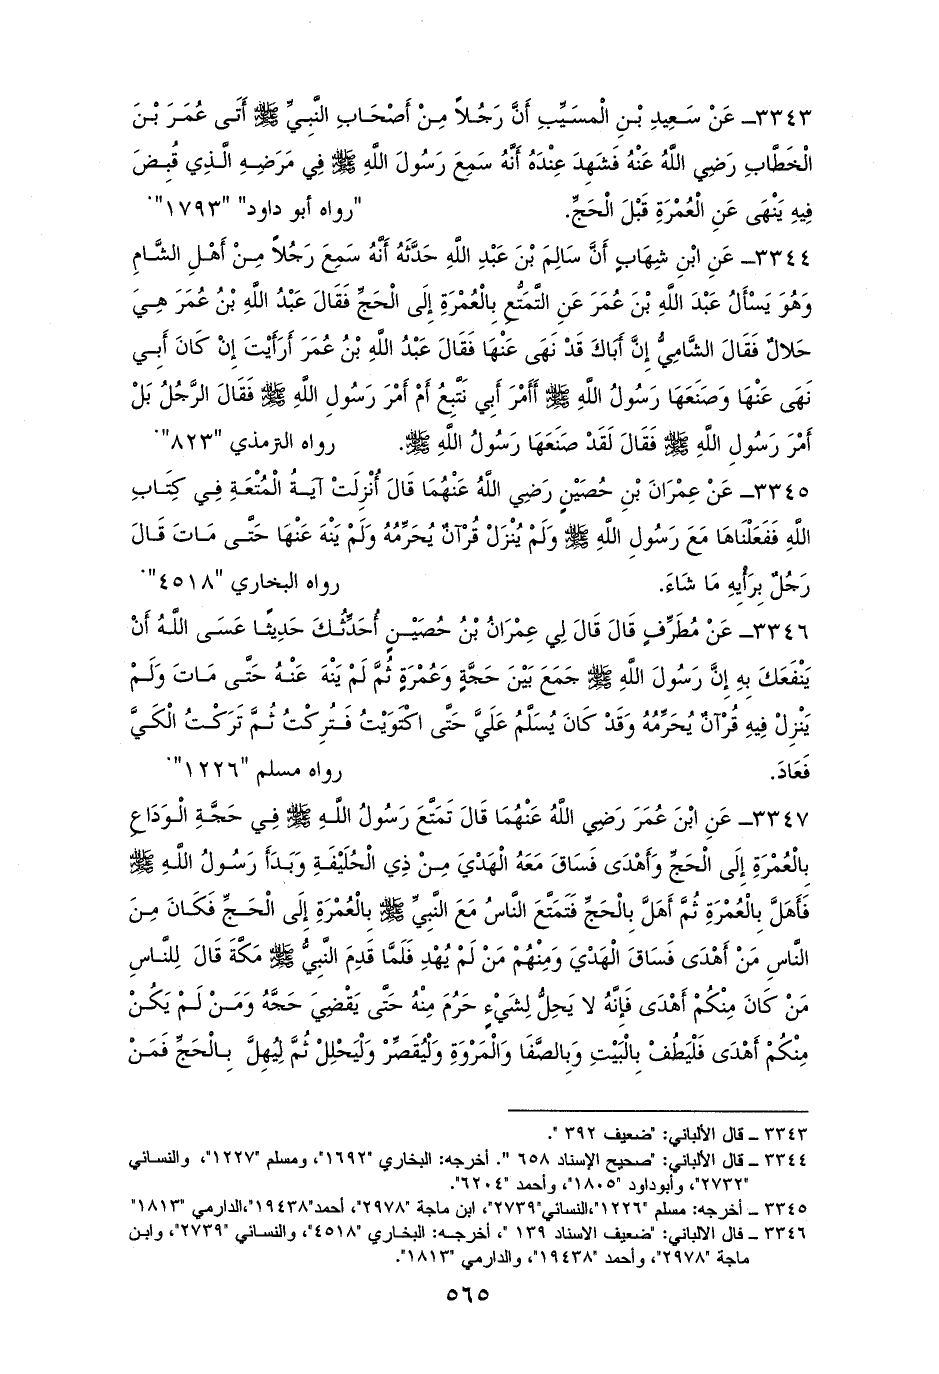 ٣٣٤٣ـ عَنْ سَعِيدِ بْنِ الْمسَيِّبِ أَنَّ رَجُلاً مِنْ أَصْحَابِ النَّبِيِّ ﷺ أَتَى عُمَرَ بْنَ
الْخَطَّابِ رَضِي اللَّهُ عَنْهُ فَشَهِدَ عِنْدَهُ أَنَّهُ سَمِعَ رَسُولَ اللَّهِ ﷺ فِي مَرَضِهِ الَّذِي قُبِضَ
فِيهِ يَنْهَى عَنِ الْعُمْرَةِ قَبْلَ الْحَجِّ. "رواه أبو داود" "١٧٩٣".
٣٣٤٤ـ عَنِ ابْنِ شِهَابٍ أَنَّ سَالِمَ بْنَ عَبْدِ اللَّهِ حَدَّثَهُ أَنَّهُ سَمِعَ رَجُلاً مِنْ أَهْلِ الشَّامِ
وَهُوَ يَسْأَلُ عَبْدَ اللَّهِ بْنَ عُمَرَ عَنِ التَّمَتُّعِ بِالْعُمْرَةِ إِلَى الْحَجِّ فَقَالَ عَبْدُ اللَّهِ بْنُ عُمَرَ هِيَ
حَلالٌ فَقَالَ الشَّامِيُّ إِنَّ أَبَاكَ قَدْ نَهَى عَنْهَا فَقَالَ عَبْدُ اللَّهِ بْنُ عُمَرَ أَرَأَيْتَ إِنْ كَانَ أَبِي
نَهَى عَنْهَا وَصَنَعَهَا رَسُولُ اللَّهِ ﷺ أَأَمْرَ أَبِي نَتَّبِعُ أَمْ أَمْرَ رَسُولِ اللَّهِ ﷺ فَقَالَ الرَّجُلُ بَلْ
أَمْرَ رَسُولِ اللَّهِ ﷺ فَقَالَ لَقَدْ صَنَعَهَا رَسُولُ اللَّهِ ﷺ. رواه الترمذي "٨٢٣".
٣٣٤٥ـ عَنْ عِمْرَانَ بْنِ حُصَيْنٍ رَضِي اللَّهُ عَنْهُمَا قَالَ أُنْزِلَتْ آيَةُ الْمُتْعَةِ فِي كِتَابِ
اللَّهِ فَفَعَلْنَاهَا مَعَ رَسُولِ اللَّهِ ﷺ وَلَمْ يُنْزَلْ قُرْآنٌ يُحَرِّمُهُ وَلَمْ يَنْهَ عَنْهَا حَتَّى مَاتَ قَالَ
رَجُلٌ بِرَأْيِهِ مَا شَاءَ. رواه البخاري "٤٥١٨".
٣٣٤٦ـ عَنْ مُطَرِّفٍ قَالَ قَالَ لِي عِمْرَانُ بْنُ حُصَيْنٍ أُحَدِّثُكَ حَدِيثًا عَسَى اللَّهُ أَنْ
يَنْفَعَكَ بِهِ إِنَّ رَسُولَ اللَّهِ ﷺ جَمَعَ بَيْنَ حَجَّةٍ وَعُمْرَةٍ ثُمَّ لَمْ يَنْهَ عَنْهُ حَتَّى مَاتَ وَلَمْ
يَنْزِلْ فِيهِ قُرْآنٌ يُحَرِّمُهُ وَقَدْ كَانَ يُسَلَّمُ عَلَيَّ حَتَّى اكْتَوَيْتُ فَتُرِكْتُ ثُمَّ تَرَكْتُ الْكَيَّ
فَعَادَ. رواه مسلم "١٢٢٦".
٣٣٤٧ـ عَنِ ابْنَ عُمَرَ رَضِي اللَّهُ عَنْهُمَا قَالَ تَمَتَّعَ رَسُولُ اللَّهِ ﷺ فِي حَجَّةِ الْوَدَاعِ
بِالْعُمْرَةِ إِلَى الْحَجِّ وَأَهْدَى فَسَاقَ مَعَهُ الْهَدْيَ مِنْ ذِي الْحُلَيْفَةِ وَبَدَأَ رَسُولُ اللَّهِ ﷺ
فَأَهَلَّ بِالْعُمْرَةِ ثُمَّ أَهَلَّ بِالْحَجِّ فَتَمَتَّعَ النَّاسُ مَعَ النَّبِيِّ ﷺ بِالْعُمْرَةِ إِلَى الْحَجِّ فَكَانَ مِنَ
النَّاسِ مَنْ أَهْدَى فَسَاقَ الْهَدْيَ وَمِنْهُمْ مَنْ لَمْ يُهْدِ فَلَمَّا قَدِمَ النَّبِيُّ ﷺ مَكَّةَ قَالَ لِلنَّاسِ
مَنْ كَانَ مِنْكُمْ أَهْدَى فَإِنَّهُ لا يَحِلُّ لِشَيْءٍ حَرُمَ مِنْهُ حَتَّى يَقْضِيَ حَجَّهُ وَمَنْ لَمْ يَكُنْ
مِنْكُمْ أَهْدَى فَلْيَطُفْ بِالْبَيْتِ وَبِالصَّفَا وَالْمَرْوَةِ وَلْيُقَصِّرْ وَلْيَحْلِلْ ثُمَّ لِيُهِلَّ بِالْحَجِّ فَمَنْ
٣٣٤٣ ـ قال الألباني: "ضعيف ٣٩٢ ".
٣٣٤٤ ـ قال الألباني: "صحيح الإسناد ٦٥٨ ". أخرجه: البخاري "١٦٩٢"، ومسلم "١٢٢٧"، والنسائي
"٢٧٣٢"، وأبوداود "١٨٠٥"، وأحمد "٦٢٠٤".
٣٣٤٥ ـ أخرجه: مسلم "١٢٢٦"،النسائي"٢٧٣٩"، ابن ماجة "٢٩٧٨"، أحمد"١٩٤٣٨"،الدارمي "١٨١٣"
٣٣٤٦ ـ قال الالباني: "ضعيف الاسناد ١٣٩ "، أخرجه: البخاري "٤٥١٨"، والنسائي "٢٧٣٩"، وابن
ماجة "٢٩٧٨"، وأحمد "١٩٤٣٨"، والدارمي "١٨١٣".
٥٦٥